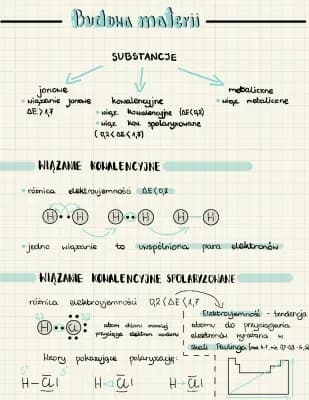 Budowa materii
SUBSTANCJE
jonowe
• wiązanie jonowe
ΔE > 1,7
kowalencyjne
• wiąz. kowalencyjne (ΔE<0,2)
• wiąz. kow. spolaryzowane
(0,2<ΔE<1,7)
metaliczne
• wiąz. metaliczne
WIĄZANIE KOWALENCYJNE
• różnica elektroujemności ΔE<0,2
H • • H H •• H H — H
• jedno wiązanie to uwspólniona para elektronów
WIĄZANIE KOWALENCYJNE SPOLARYZOWANE
różnica elektroujemności 0,2<ΔE<1,7
H Cl
atom chloru mocniej
przyciąga elektron wodoru
Elektroujemność - tendencja
atomu do przyciągania
elektronów wyrażana w
skali Paulinga
Wzory pokazujące polaryzację:
δ+ δ-
H – Cl H Cl H Cl